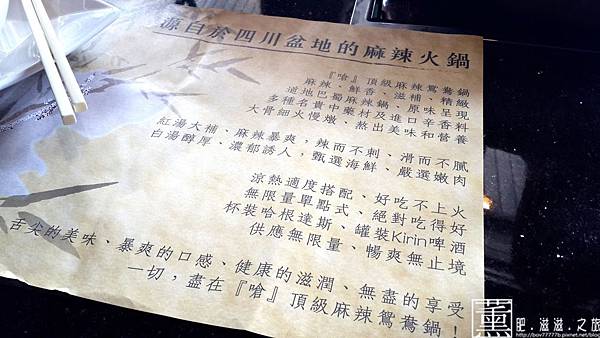 源自於四川盆地的麻辣火鍋
『嗆』頂級麻辣鴛鴦鍋
麻辣、鮮香、滋補、精緻
道地巴蜀麻辣鍋、原味呈現
多種名貴中藥材及進口辛香料
大骨細火慢燉、熬出美味和營養
紅湯大補、麻辣暴爽，辣而不刺、滑而不膩
白湯醇厚、濃郁誘人，甄選海鮮、嚴選嫩肉
涼熱適度搭配、好吃不上火
無限量單點式、絕對吃得好
杯裝哈根達斯、罐裝Kirin啤酒
供應無限量、暢爽無止境
舌尖的美味、暴爽的口感、健康的滋潤、無盡的享受
一切，盡在『嗆』頂級麻辣鴛鴦鍋！
薰 肥.滋滋.之旅
http://bov77777b.pixnet.net/blog